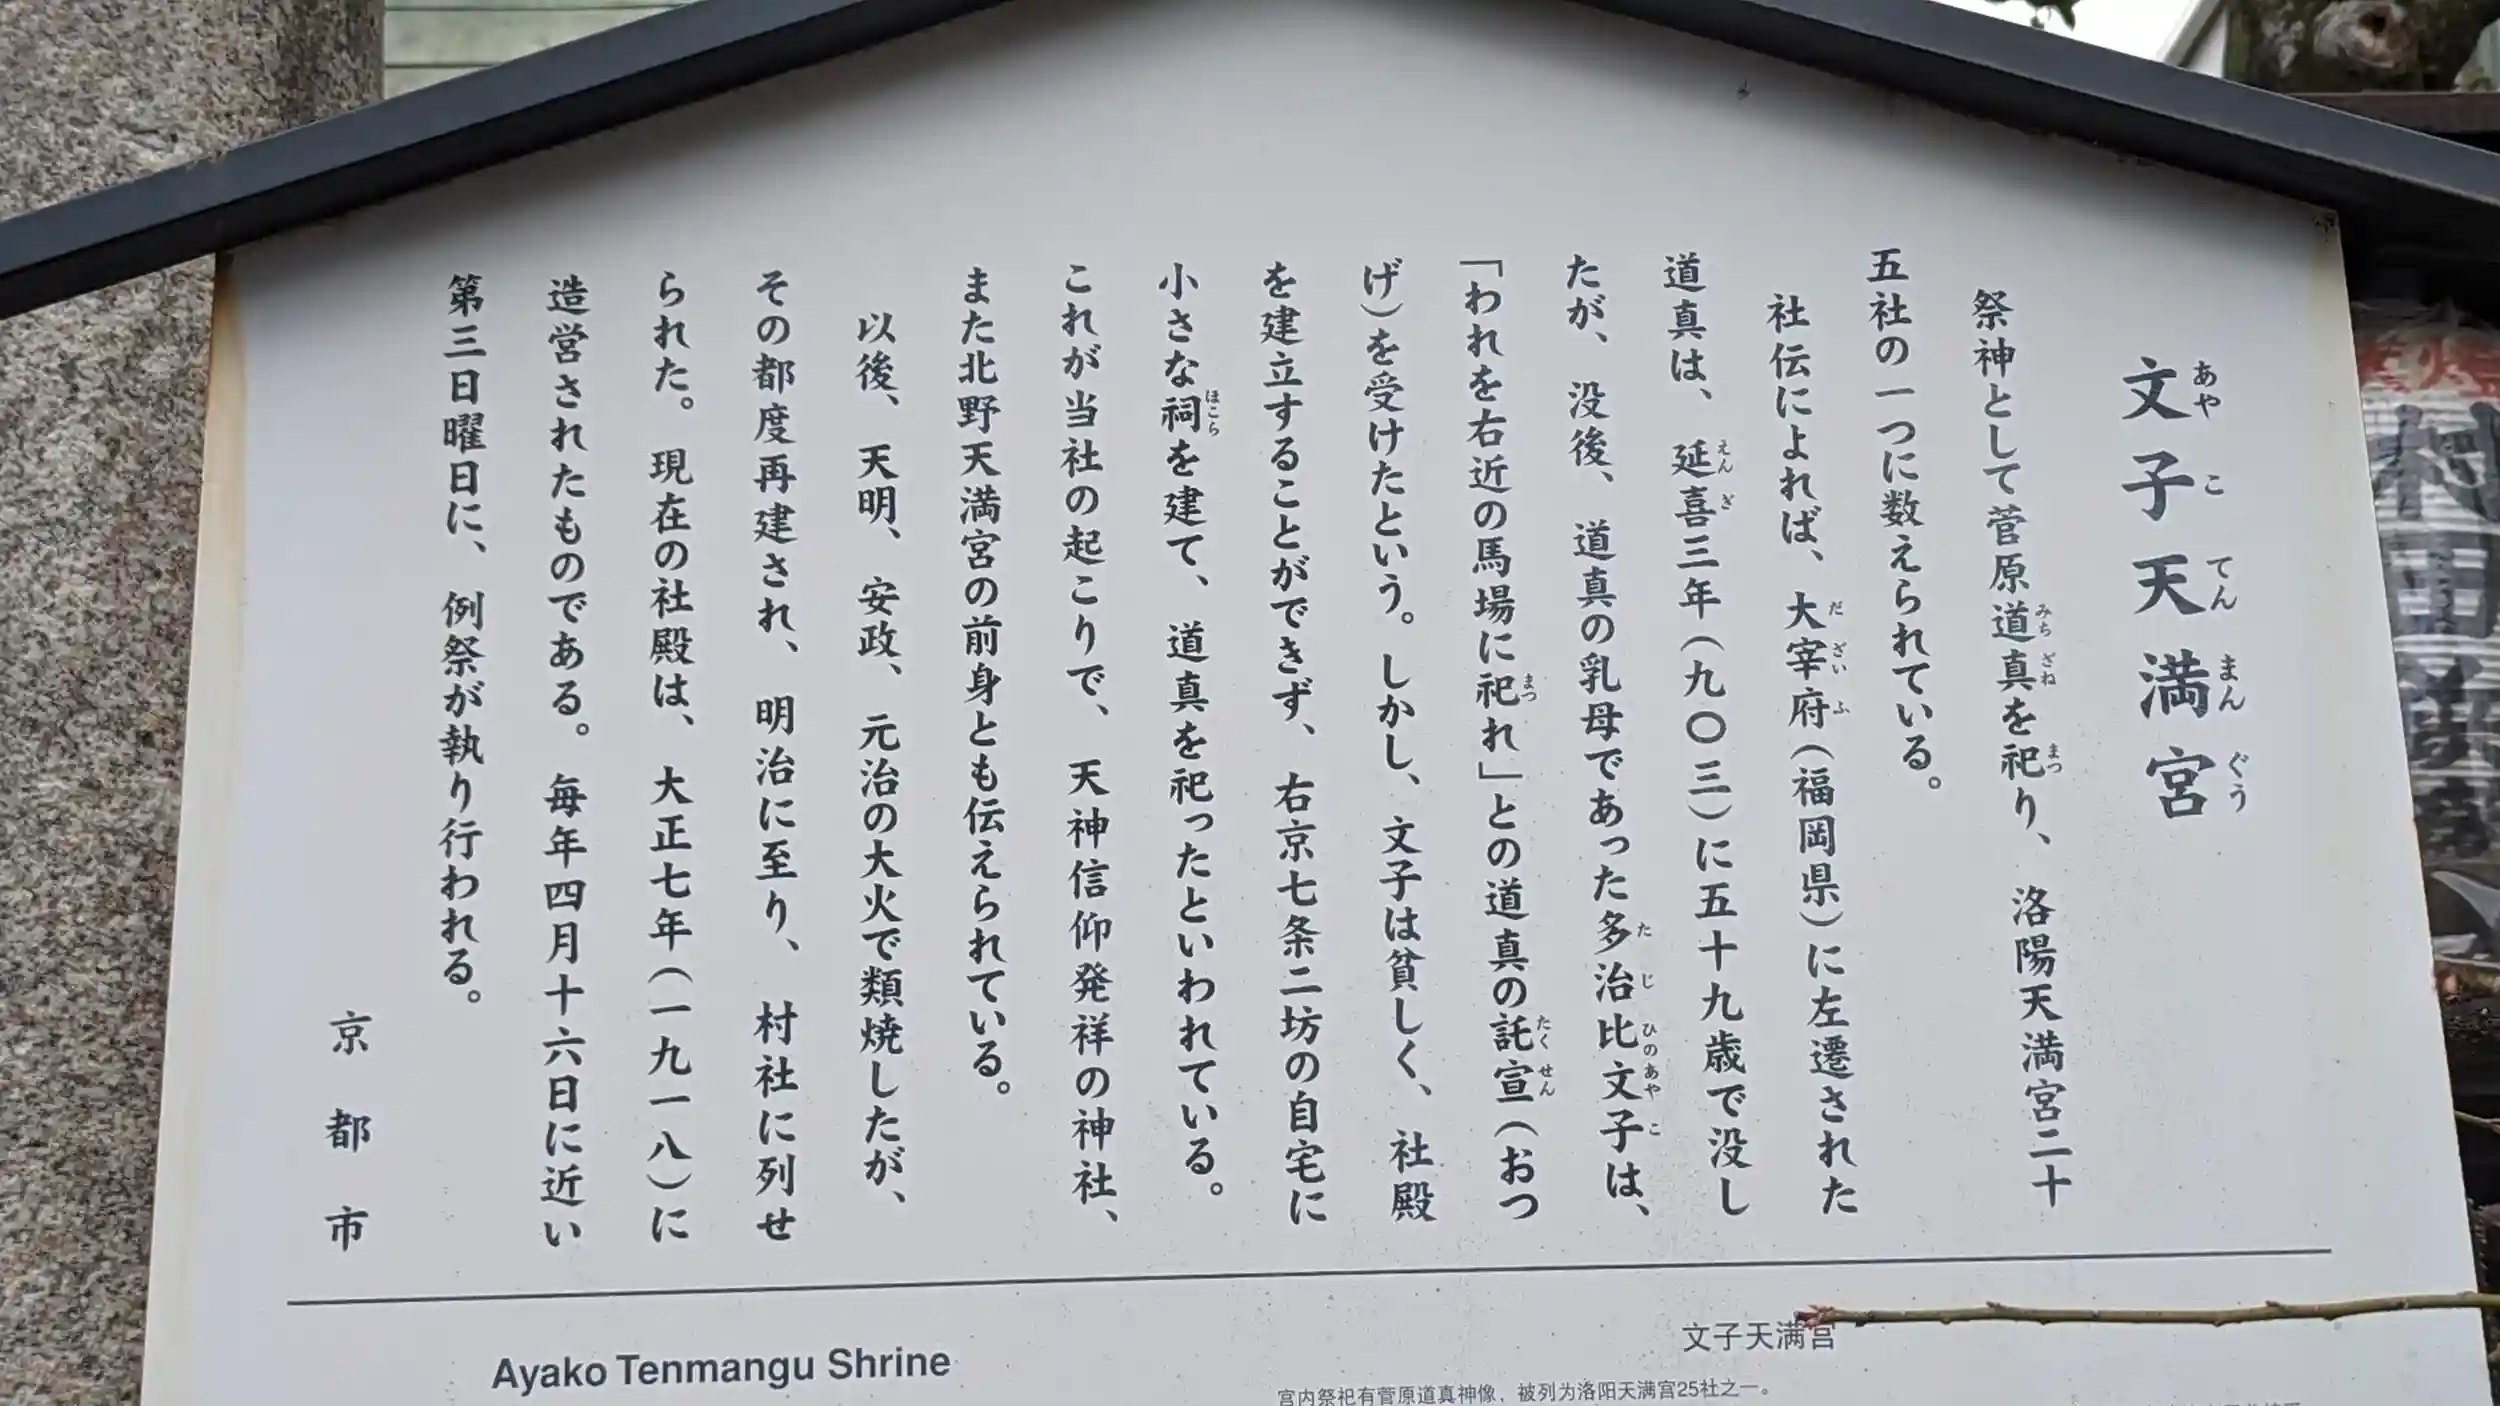 文子天満宮
あやこてんまんぐう
祭神として菅原道真を祀り、洛陽天満宮二十
みちざね まつ
五社の一つに数えられている。
社伝によれば、大宰府（福岡県）に左遷された
だざいふ
道真は、延喜三年（九〇三）に五十九歳で没し
えんぎ
たが、没後、道真の乳母であった多治比文子は、
たじひのあやこ
「われを右近の馬場に祀れ」との道真の託宣（おつ
まつ たくせん
げ）を受けたという。しかし、文子は貧しく、社殿
を建立することができず、右京七条二坊の自宅に
小さな祠を建て、道真を祀ったといわれている。
ほこら
これが当社の起こりで、天神信仰発祥の神社、
また北野天満宮の前身とも伝えられている。
以後、天明、安政、元治の大火で類焼したが、
その都度再建され、明治に至り、村社に列せ
られた。現在の社殿は、大正七年（一九一八）に
造営されたものである。毎年四月十六日に近い
第三日曜日に、例祭が執り行われる。
京都市
Ayako Tenmangu Shrine
文子天满宫
宫内祭祀有菅原道真神像，被列为洛阳天满宫25社之一。